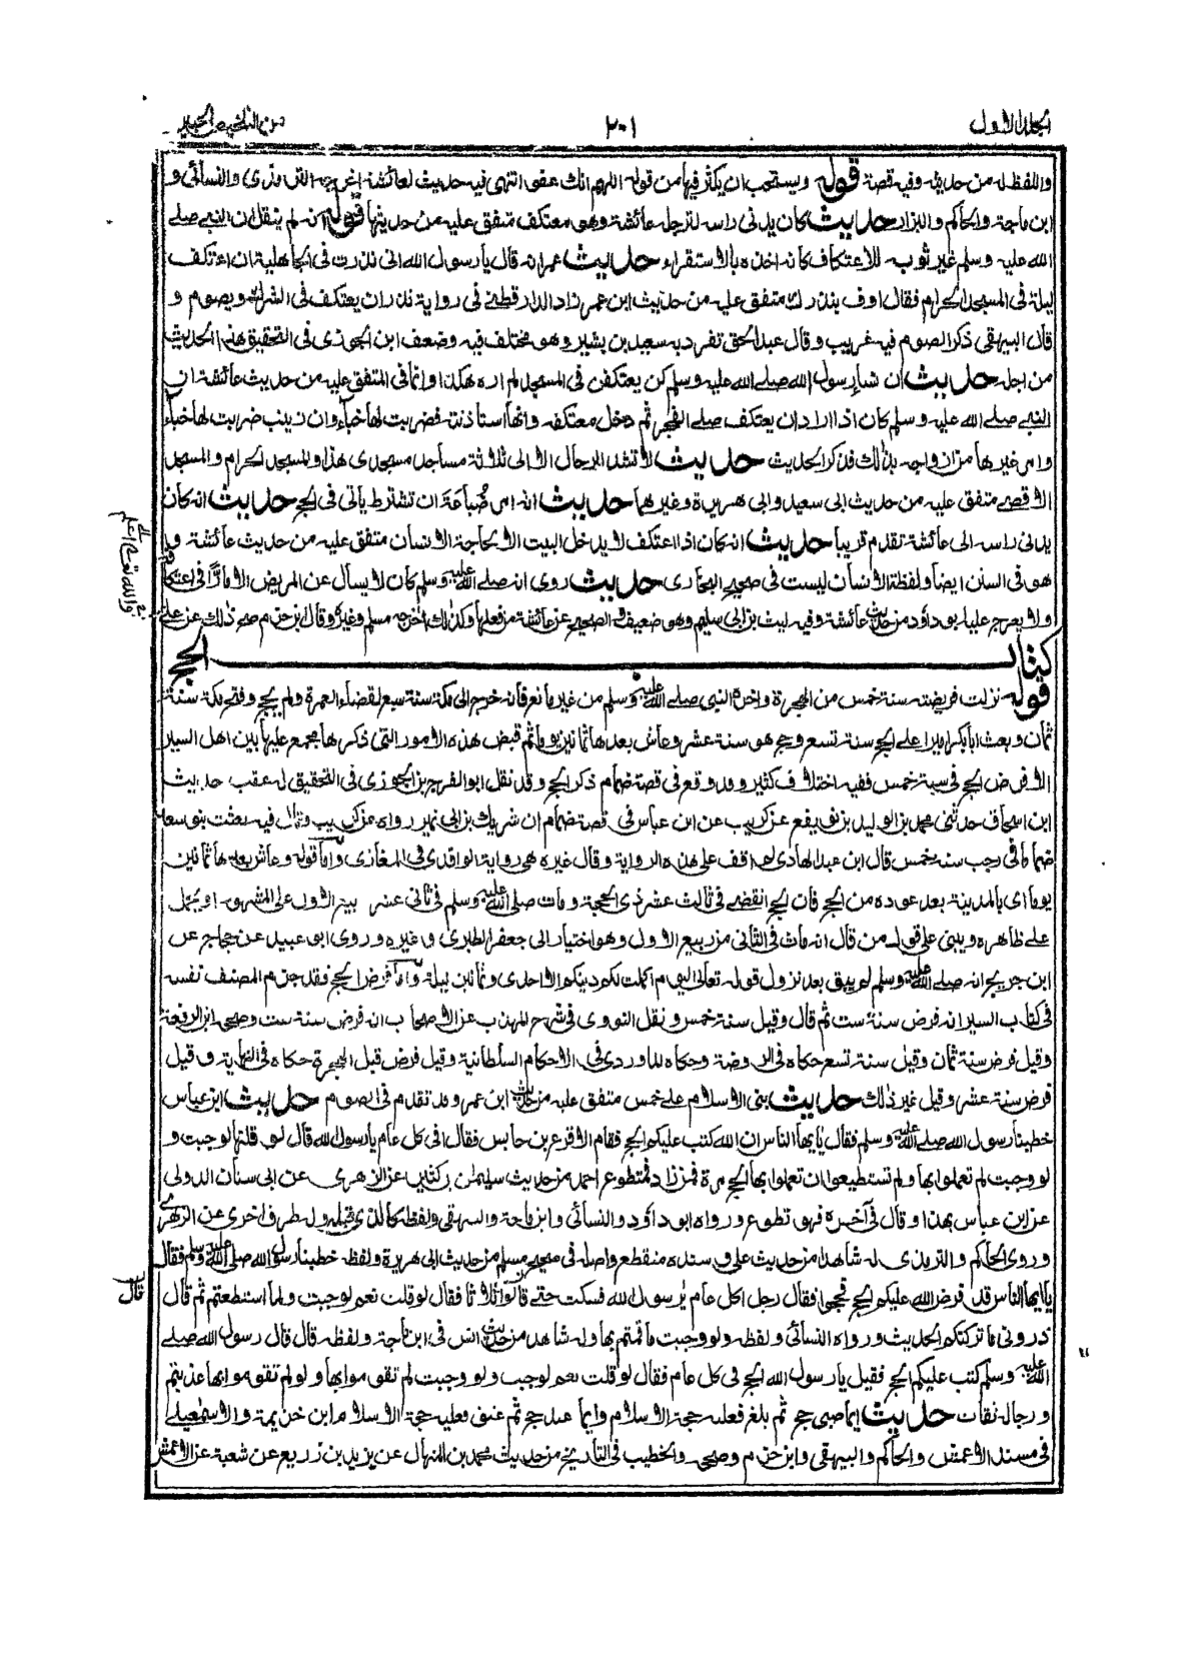 المجلد الاول
٢٠١
من التلخيص الحبير
واللفظ له من حديثه وفيه قصة قوله ويستحب ان يكثر فيها من قوله اللهم انك عفو انتهى فيه حديث لعائشة اخرجه الترمذى والنسائى و
ابن ماجة والحاكم والبزار حديث كان يدنى راسه لترجل عائشة وهو معتكف متفق عليه من حديثها قوله انه لم ينقل ان النبي صلے
الله عليه وسلم غير ثوبه للاعتكاف كانه اخذه بالاستقراء حديث عمر انه قال يا رسول الله انى نذرت فى الجاهلية ان اعتكف
ليلة فى المسجد الحرام فقال اوف بنذرك متفق عليه من حديث ابن عمر زاد الدارقطنے فى رواية نذر ان يعتكف فى الشرك ويصوم و
قال البيهقى ذكر الصوم فيه غريب وقال عبد الحق تفرد به سعيد بن بشير وهو مختلف فيه وضعف ابن الجوزى فى التحقيق هذا الحديث
من اجله حديث ان نساء رسول الله صلے الله عليه وسلم كن يعتكفن فى المسجد لم اره هكذا وانما فى المتفق عليه من حديث عائشة ان
النبے صلے الله عليه وسلم كان اذا اراد ان يعتكف صلے الفجر ثم دخل معتكفه وانها استاذنته فضربت لها خباء وان زينب ضربت لها خباء
وامر غيرها من ازواجه بذلك فذكر الحديث حديث لا تشد الرحال الا الى ثلاثة مساجد مسجدى هذا والمسجد الحرام والمسجد
الاقصے متفق عليه من حديث ابى سعيد وابى هريرة وغيرها حديث انه امر ضباعة ان تشترط ياتى فى الحج حديث انه كان
يدنى راسه الى عائشة تقدم قريبا حديث انه كان اذا اعتكف لا يدخل البيت الا لحاجة الانسان متفق عليه من حديث عائشة و
هو فى السنن ايضا ولفظة الانسان ليست فى صحيح البخارى حديث روى انه صلے الله عليه وسلم كان لا يسأل عن المريض الا مارًّا فى اعتكافه
ولا يعرج عليه ابو داود من حديث عائشة وفيه ليث بن ابى سليم وهو ضعيف والصحيح عن عائشة من فعلها وكذلك اخرجه مسلم وغيره وقال ابن حزم صح ذلك عن على
والله تعالى اعلم
كتاب الحج
قوله نزلت فريضته سنة خمس من الهجرة واخره النبى صلے الله عليه وسلم من غير مانع فانه خرج الى مكة سنة سبع لقضاء العمرة ولم يحج وفتح مكة سنة
ثمان وبعث ابا بكر اميرا على الحج سنة تسع وحج هو سنة عشر وعاش بعدها ثمانين يوما ثم قبض هذه الامور التى ذكرها مجمع عليها بين اهل السير
الا فرض الحج فى سنة خمس ففيه اختلاف كثير وقد وقع فى قصة ضمام ذكر الحج وقد نقل ابو الفرج بن الجوزى فى التحقيق له عقب حديث
ابن اسحاق حدثنى محمد بن الوليد بن نويفع عن كريب عن ابن عباس فى قصة ضمام ان شريك بن ابى نمير رواه عن كريب وقال فيه بعثت بنو سعد
ضماما فى رجب سنة خمس قال ابن عبد الهادى لم اقف على هذه الرواية وقال غيره هى رواية الواقدى فى المغازى واما قوله وعاش بعدها ثمانين
يوما اى بالمدينة بعد عوده من الحج فان الحج انقضے فى ثالث عشر ذى الحجة ومات صلے الله عليه وسلم فى ثانى عشر ربيع الاول على المشهور او يحمل
علے ظاهره ويبنى على قول من قال انه مات فى الثانى من ربيع الاول وهو اختيار ابى جعفر الطبرى وغيره وروى ابو عبيد عن حجاج عن
ابن جريج انه صلے الله عليه وسلم لم يبق بعد نزول قوله تعالى اليوم اكملت لكم دينكم الا احدى وثمانين ليلة واما فرض الحج فقد جزم المصنف نفسه
فى كتاب السير انه فرض سنة ست ثم قال وقيل سنة خمس ونقل النووى فى شرح المهذب عن الاصحاب انه فرض سنة ست وصححه ابن الرفعة
وقيل فرض سنة ثمان وقيل سنة تسع حكاه فى الروضة وحكاه الماوردى فى الاحكام السلطانية وقيل فرض قبل الهجرة حكاه فى النهاية وقيل
فرض سنة عشر وقيل غير ذلك حديث بنى الاسلام على خمس متفق عليه من حديث ابن عمر وقد تقدم فى الصوم حديث ابن عباس
خطبنا رسول الله صلے الله عليه وسلم فقال يا ايها الناس ان الله كتب عليكم الحج فقام الاقرع بن حابس فقال افى كل عام يا رسول الله قال لو قلتها لوجبت و
لو وجبت لم تعملوا بها ولم تستطيعوا ان تعملوا بها الحج مرة فمن زاد فمتطوع احمد من حديث سليمان بن كثير عن الزهرى عن ابى سنان الدولى
عن ابن عباس بهذا وقال فى آخره فهو تطوع ورواه ابو داؤد والنسائى وابن ماجة والبيهقى ولفظه كالذى قبله وله طرق اخرى عن الزهرى
وروى الحاكم والترمذى له شاهدا من حديث على وسنده منقطع واصله فى صحيح مسلم من حديث ابى هريرة ولفظه خطبنا رسول الله صلى الله عليه وسلم فقال
يا ايها الناس قد فرض الله عليكم الحج فحجوا فقال رجل اكل عام يا رسول الله فسكت حتے قالها ثلاثا فقال لو قلت نعم لوجبت ولما استطعتم ثم قال
قال
ذرونى ما تركتكم الحديث ورواه النسائى ولفظه ولو وجبت ما قمتم بها وله شاهد من حديث انس فى ابن ماجة ولفظه قال قال رسول الله صلے
الله عليه وسلم كتب عليكم الحج فقيل يا رسول الله الحج فى كل عام فقال لو قلت نعم لوجب ولو وجبت لم تقوموا بها ولو لم تقوموا بها عذبتم
ورجاله ثقات حديث ايما صبى حج ثم بلغ فعليه حجة الاسلام وايما عبد حج ثم عتق فعليه حجة الاسلام ابن خزيمة والاسمعيلے
فى مسند الاعمش والحاكم والبيهقى وابن حزم وصححه والخطيب فى التاريخ من حديث محمد بن المنهال عن يزيد بن زريع عن شعبة عن الاعمش